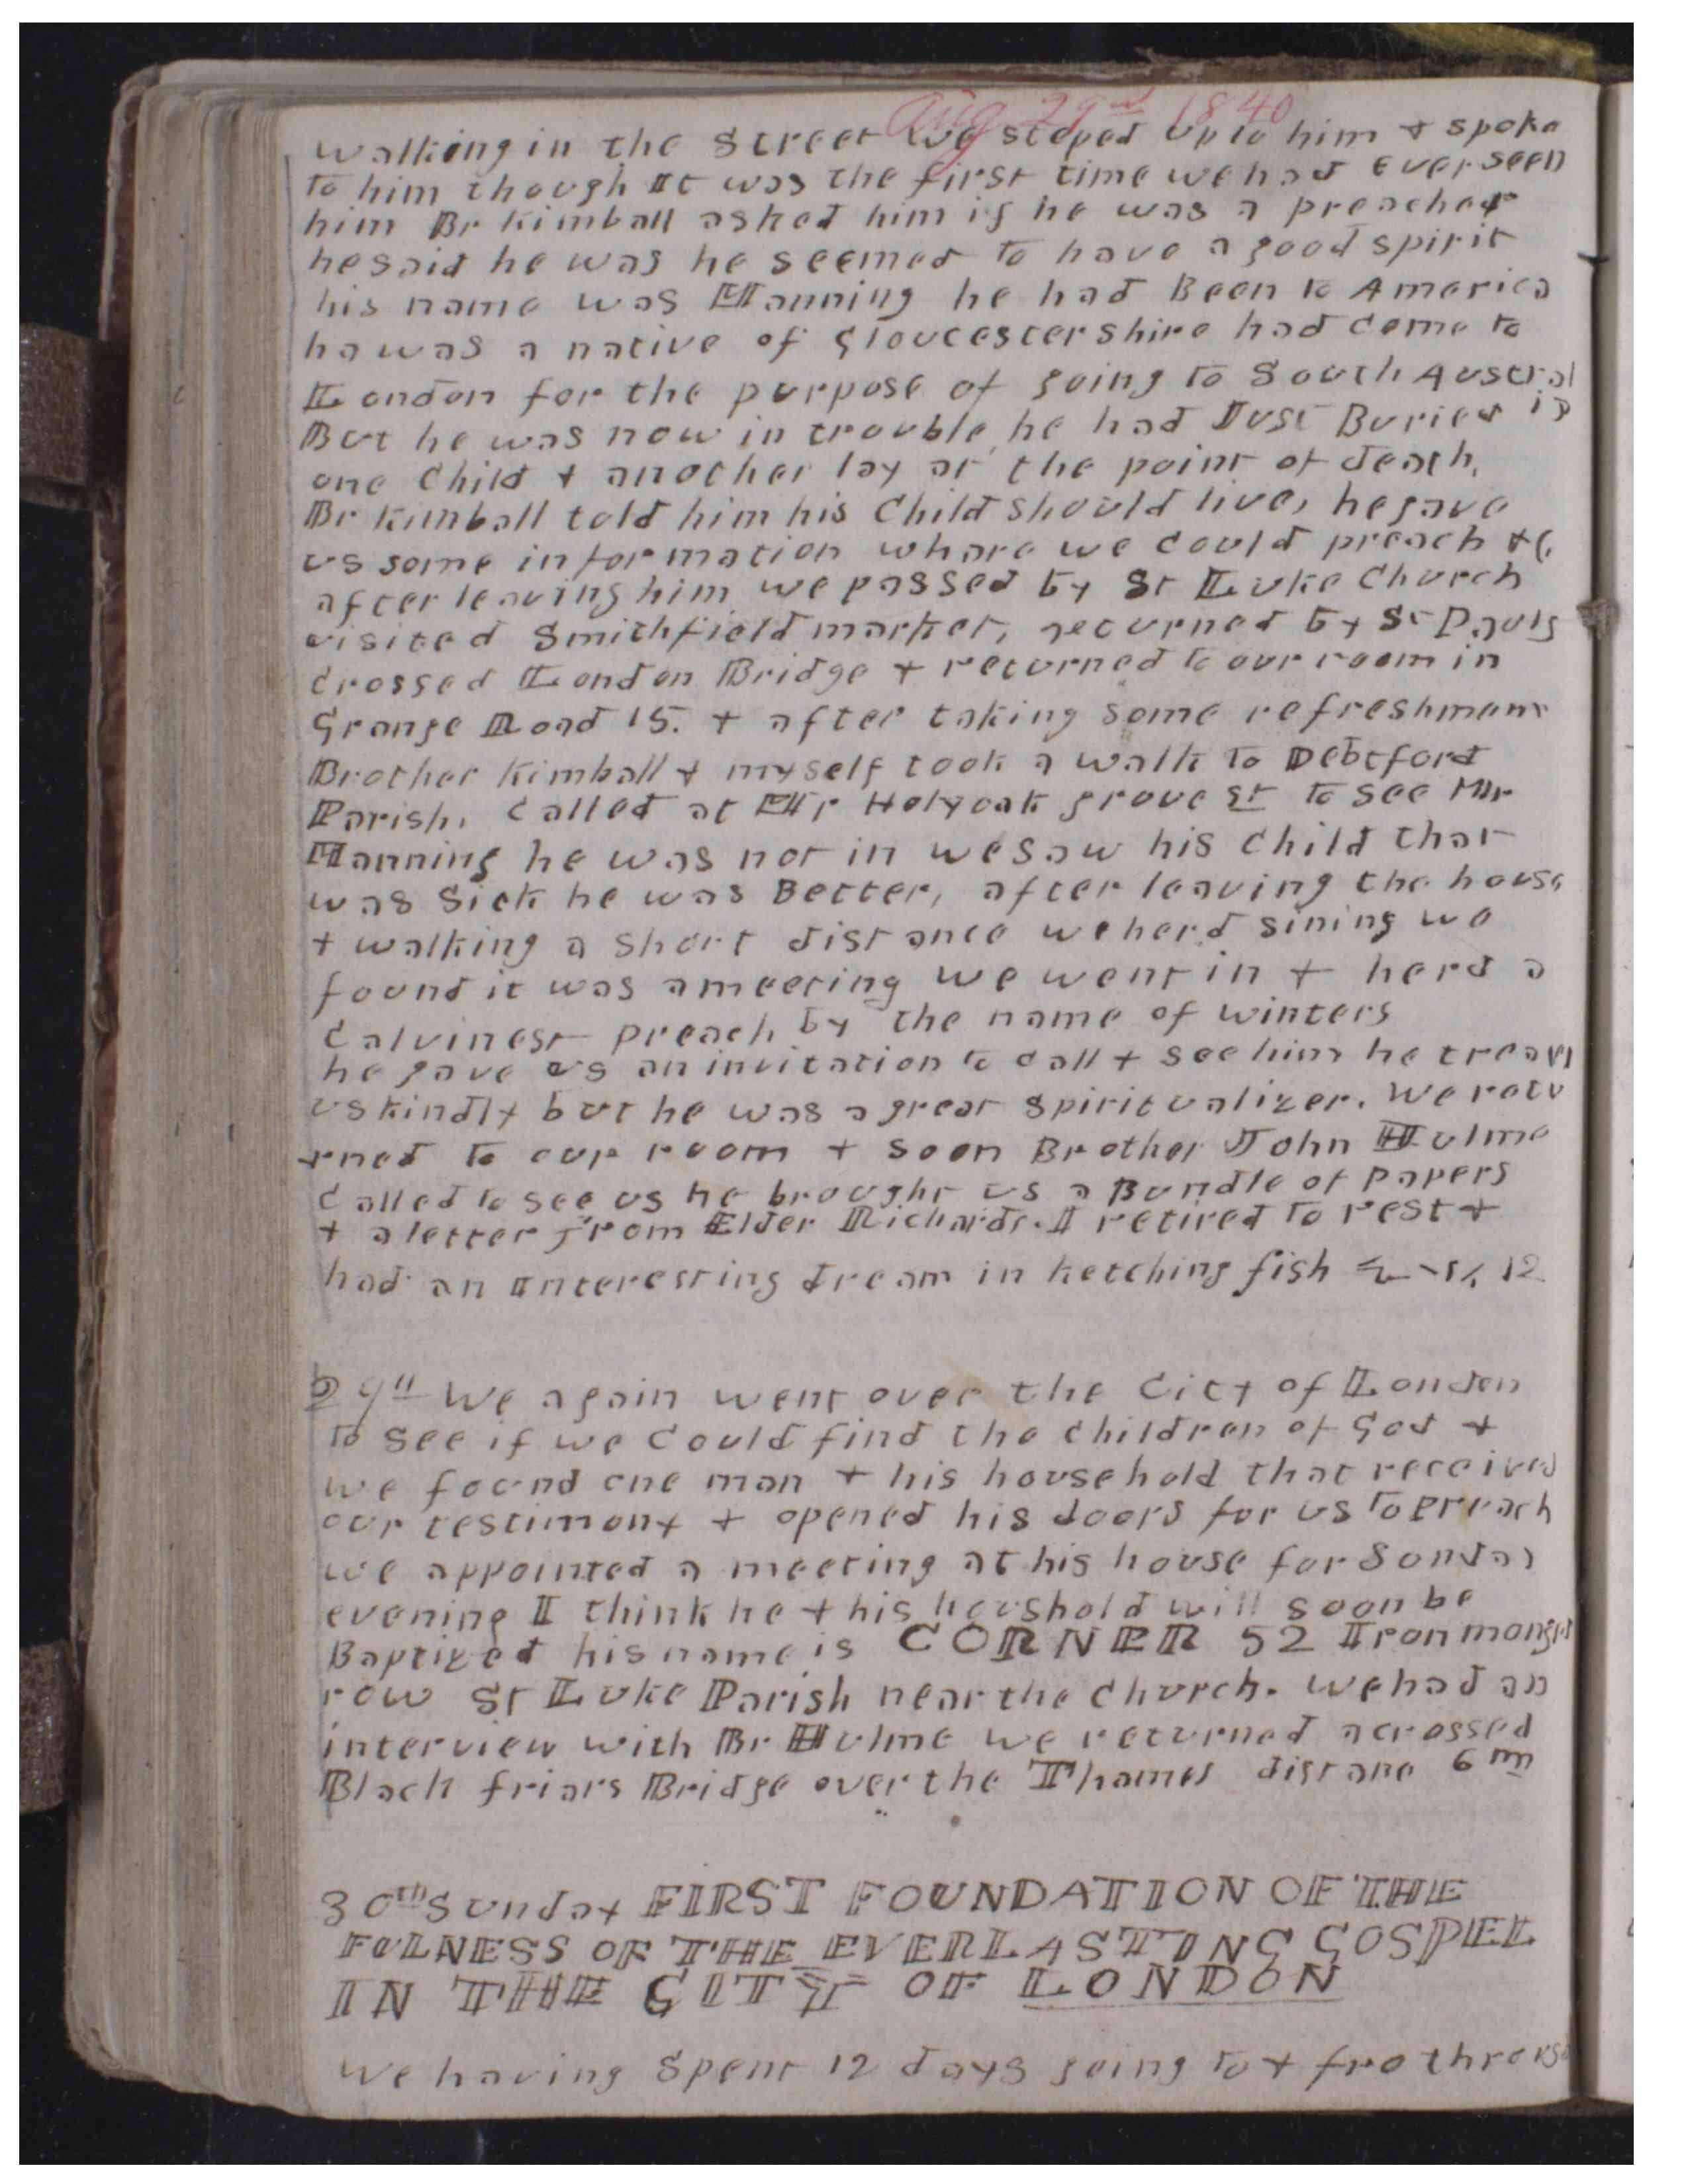 Aug 29th 1840
walking in the Street we steped up to him + spoke
to him though It was the first time we had ever seen
him Br Kimball asked him if he was a preacher
he said he was he seemed to have a good spirit
his name was Manning he had Been to America
he was a native of Gloucestershire had come to
London for the purpose of going to South Austral
But he was now in trouble, he had Just Buried ia
one Child + another lay at the point of death,
Br Kimball told him his Child should live, he gave
us some information whare we could preach &c,
after leaving him we passed by St Luke Church
visited Smithfield market, returned by St Pauls
crossed London Bridge + returned to our room in
Grange Road 15. + after taking some refreshment
Brother Kimball + myself took a walk to Debtford
Parish, called at Mr Holyoak grove St to see Mr
Manning he was not in we saw his Child that
was Sick he was Better, after leaving the house
+ walking a short distance we herd sining we
found it was a meeting we went in + herd a
Calvinest preach by the name of winters
he gave us an invitation to call + see him he treat
us kindly but he was a great spiritualizer. We retu
rned to our room + soon Brother John Hulme
called to see us he brought us a Bundle of papers
+ a letter from Elder Richards. I retired to rest +
had an interesting dream in ketching fish 12
29th We again went over the City of London
to see if we could find the children of God +
we found one man + his household that received
our testimony + opened his doors for us to preach
we appointed a meeting at his house for Sunday
evening I think he + his houshold will soon be
Baptized his name is CORNER 52 Ironmonger
row St Luke Parish near the church. we had an
interview with Br Hulme we returned acrossed
Black friars Bridge over the Thames distane 6 m
30th Sunday FIRST FOUNDATION OF THE
FULNESS OF THE EVERLASTING GOSPEL
IN THE CITY OF LONDON
We having spent 12 days going to + fro through